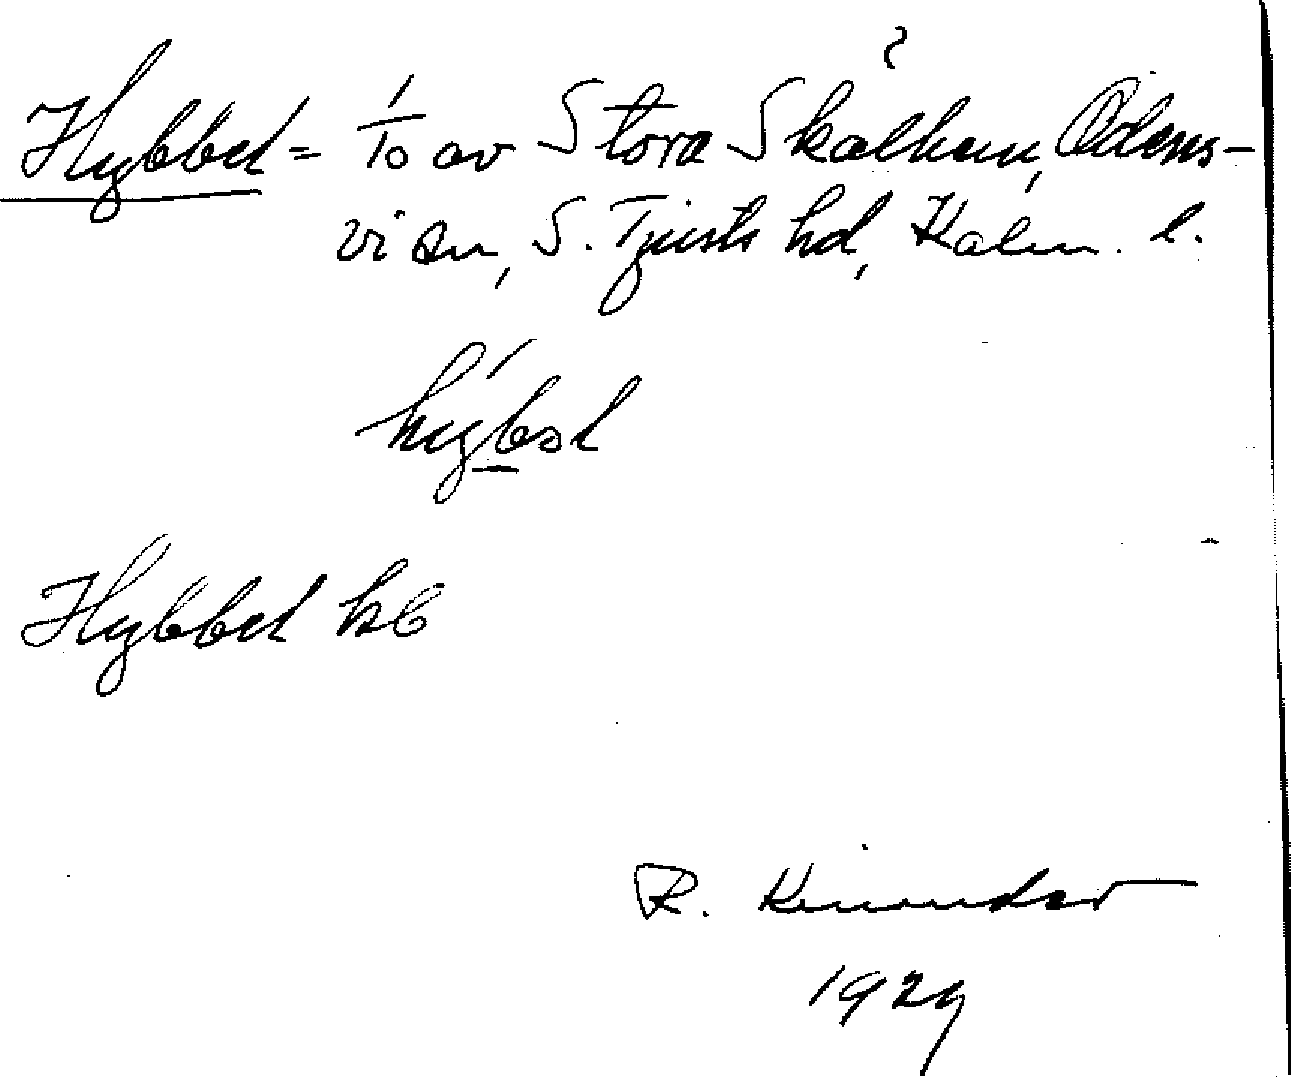 Hybbel = 1/10 av Stora Skålhem, Odens-
vi sn, S. Tjusts hd, Kalm. l.
hýbəl
Hybbel kb
R. Kinander
1929